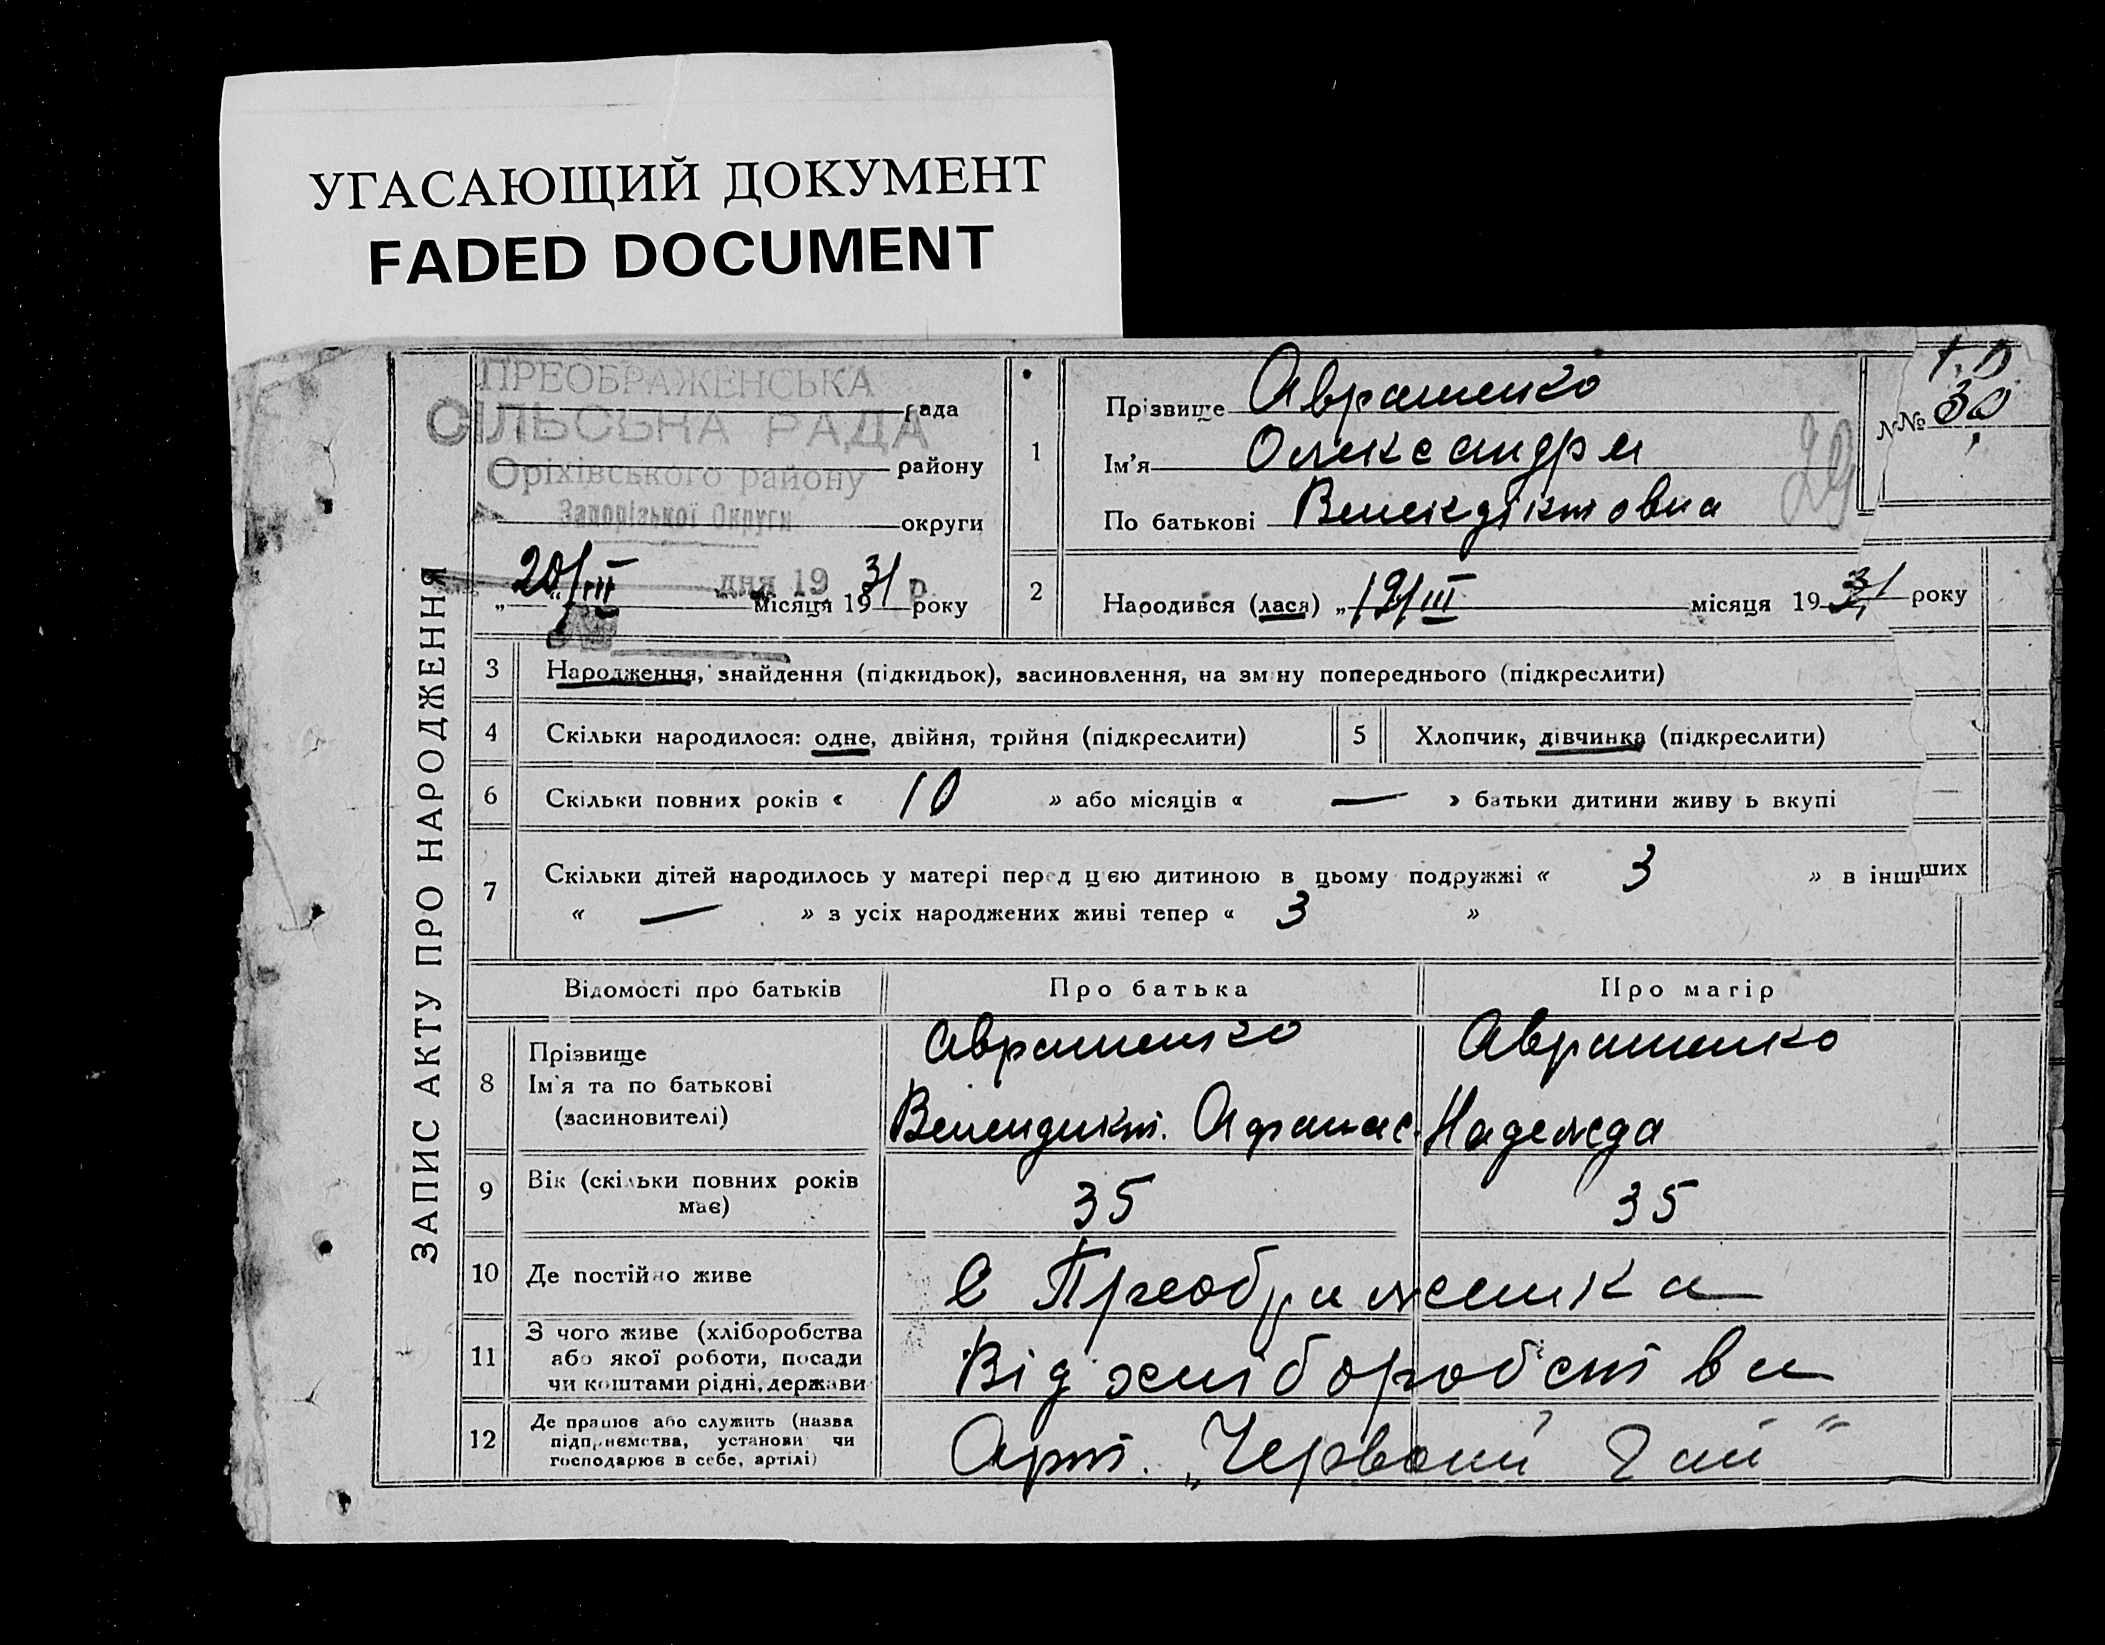 УГАСАЮЩИЙ ДОКУМЕНТ
FADED DOCUMENT
ЗАПИС АКТУ ПРО НАРОДЖЕННЯ
ПРЕОБРАЖЕНСЬКА
рада
СІЛЬСЬКА РАДА
Оріхівського району
району
Запорізької Округи
округи
дня 19 р.
„20/III місяця 1931 року
1
Прізвище Аврашенко
Ім'я Олександра
По батькові Венекдіктовна
29
№№ 30
2
Народився (лася) „19/III місяця 1931 року
3 Народження, знайдення (підкидьок), засиновлення, на зміну попереднього (підкреслити)
4 Скільки народилося: одне, двійня, трійня (підкреслити)
5 Хлопчик, дівчинка (підкреслити)
6 Скільки повних років « 10 » або місяців « — » батьки дитини живуть вкупі
7 Скільки дітей народилось у матері перед цією дитиною в цьому подружжі « 3 » в інших
« — » з усіх народжених живі тепер « 3 »
Відомості про батьків Про батька Про матір
8 Прізвище
Ім'я та по батькові
(засиновителі)
Аврашенко
Венендикт. Афанас.
Аврашенко
Надежда
9 Вік (скільки повних років
має)
35 35
10 Де постійно живе С Преображенка
11 З чого живе (хліборобства
або якої роботи, посади
чи коштами рідні, держави
Від хліборобства
12 Де працює або служить (назва
підприємства, установи чи
господарює в себе, артілі)
Арт. „Червоний Гай"